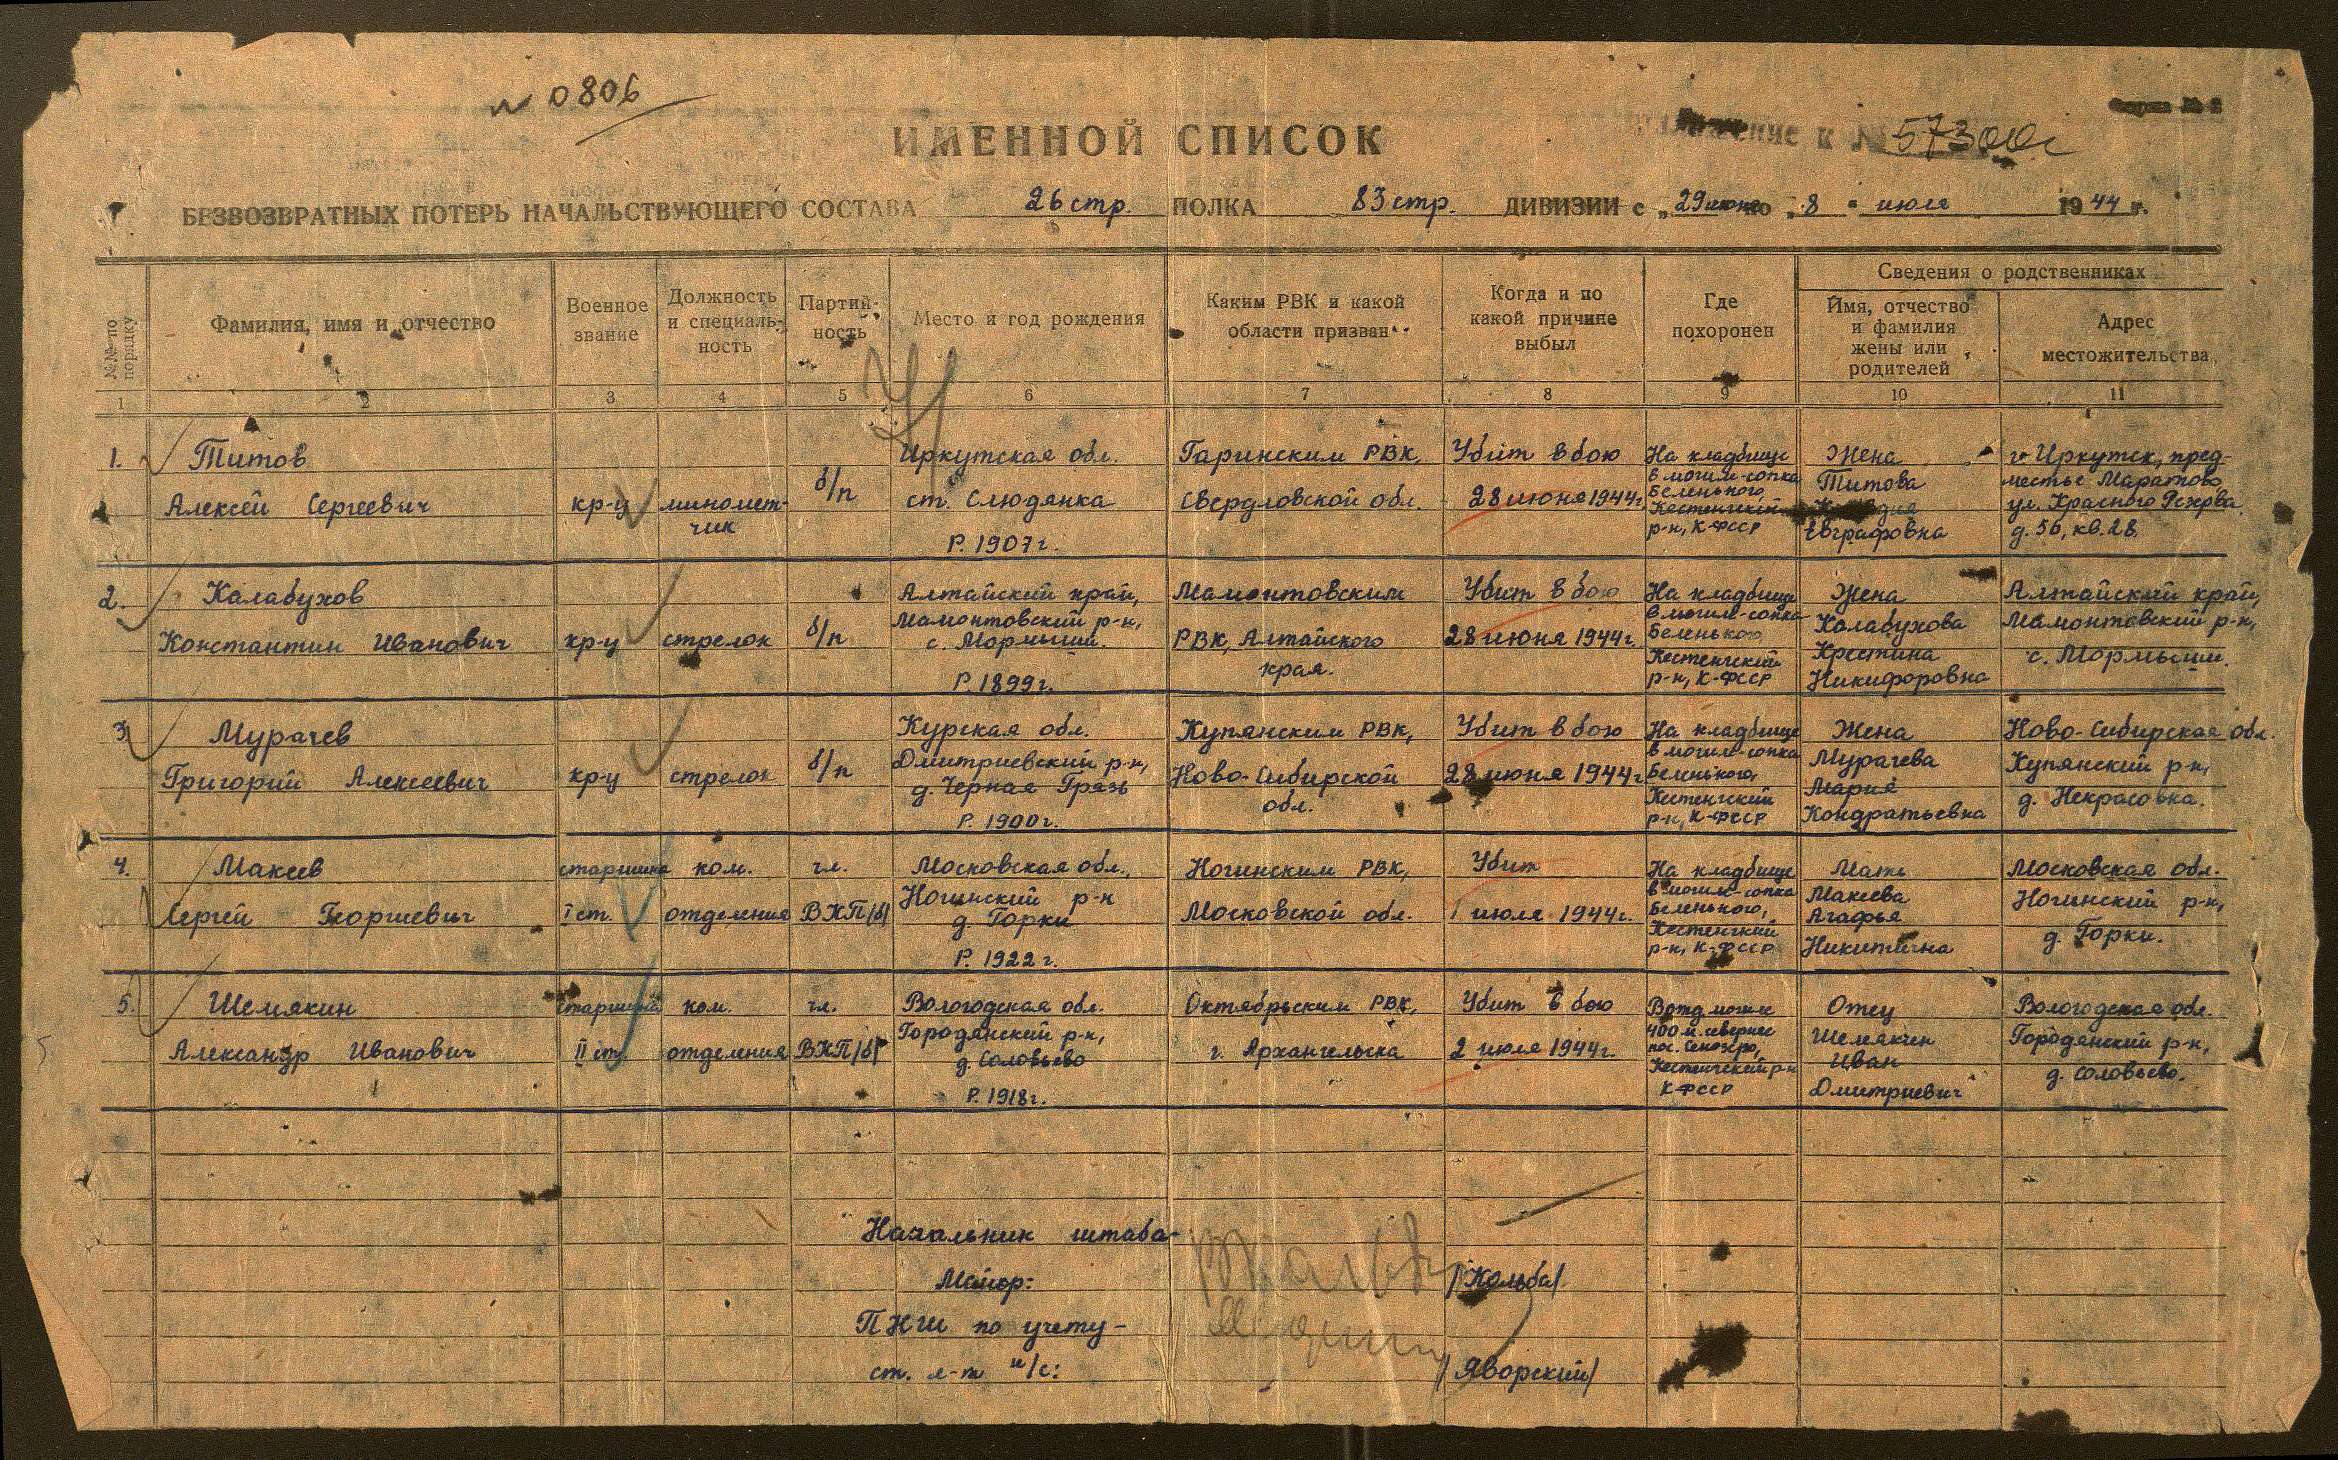 0806
Форма № 2
ИМЕННОЙ СПИСОК
к № 57300с
БЕЗВОЗВРАТНЫХ ПОТЕРЬ НАЧАЛЬСТВУЮЩЕГО СОСТАВА 26 стр. ПОЛКА 83 стр. ДИВИЗИИ с „29 июня по „8" июля 1944 г.
№№ по порядку
Фамилия, имя и отчество
Военное звание
Должность и специаль-ность
Партий-ность
Место и год рождения
Каким РВК и какой области призван
Когда и по какой причине выбыл
Где похоронен
Сведения о родственниках
Имя, отчество и фамилия жены или родителей
Адрес местожительства
1 2 3 4 5 6 7 8 9 10 11
1. Титов Иркутская обл. Гаринским РВК, Убит в бою На кладбище Жена г. Иркутск, пред-
Алексей Сергеевич кр-ц миномет- б/п ст. Слюдянка Свердловской обл. 28 июня 1944 г. в могиле-сопка Титова местье Маратово
чик Беленького, ул. Красного Резерва,
Р. 1907 г. Кестенгский р-н, К-ФССР Евграфовна д. 56, кв. 28.
2. Калабухов Алтайский край, Мамонтовским Убит в бою На кладбище Жена Алтайский край,
Мамонтовский р-н, в могиле-сопка Калабухова Мамонтовский р-н,
Константин Иванович кр-ц стрелок б/п с. Мормыши. РВК, Алтайского 28 июня 1944 г. Беленького, Крестина с. Мормыши.
Р. 1899 г. края. Кестенгский р-н, К-ФССР Никифоровна
3. Мурачев Курская обл. Купянским РВК, Убит в бою На кладбище Жена Ново-Сибирская обл.
Дмитриевский р-н, в могиле-сопка Мурачева Купянский р-н,
Григорий Алексеевич кр-ц стрелок б/п д. Черная Грязь Ново-Сибирской 28 июня 1944 г. Беленького, Мария д. Некрасовка.
Р. 1900 г. обл. Кестенгский р-н, К-ФССР Кондратьевна
4. Макеев старшина ком. чл. Московская обл., Ногинским РВК, Убит На кладбище Мать Московская обл.
Ногинский р-н в могиле-сопка Макеева Ногинский р-н,
Сергей Георгиевич I ст. отделения ВКП/б/ д. Горки Московской обл. 1 июля 1944 г. Беленького, Агафья д. Горки.
Р. 1922 г. Кестенгский р-н, К-ФССР Никитична
5. Шемякин старшина ком. чл. Вологодская обл. Октябрьским РВК, Убит в бою В отд. могиле Отец Вологодская обл.
Городянский р-н, 400 м. севернее Шемякин Городянский р-н,
Александр Иванович II ст. отделения ВКП/б/ д. Соловьево г. Архангельска 2 июля 1944 г. пос. Сенозеро, Иван д. Соловьево.
Р. 1918 г. Кестенгский р-н К-ФССР Дмитриевич
Начальник штаба-
Майор: /Кольба/
ПНШ по учету-
ст. л-т и/с: /Яворский/